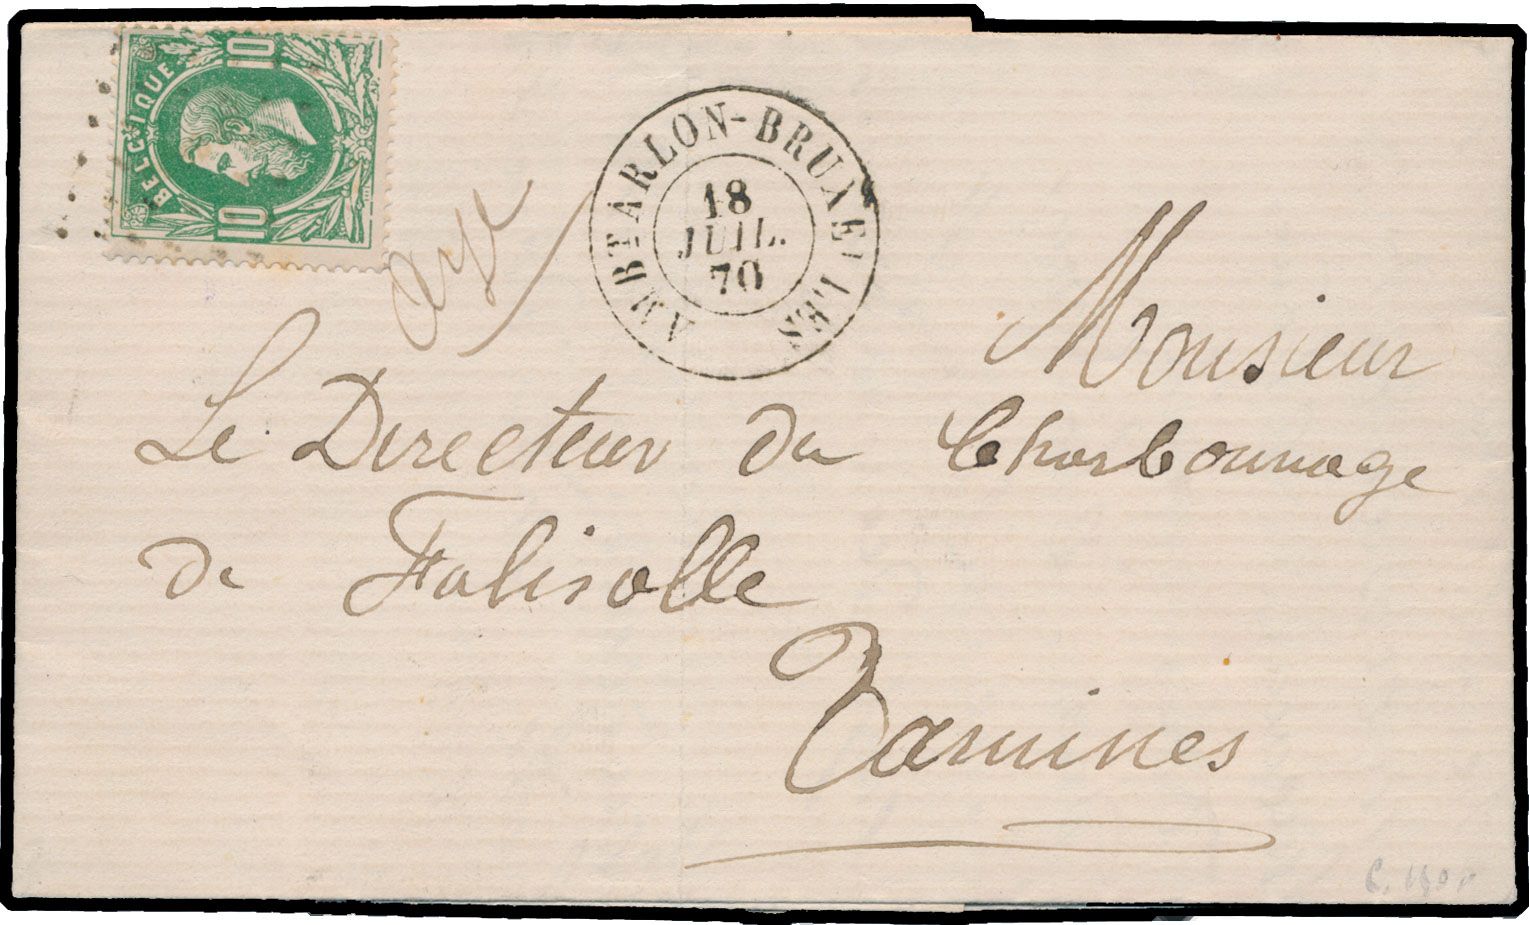 10
BELGIQUE
10
AMBT ARLON-BRUXELLES
18
JUIL.
70
Monsieur
Le Directeur du Charbonnage
de Falisolle
Tamines